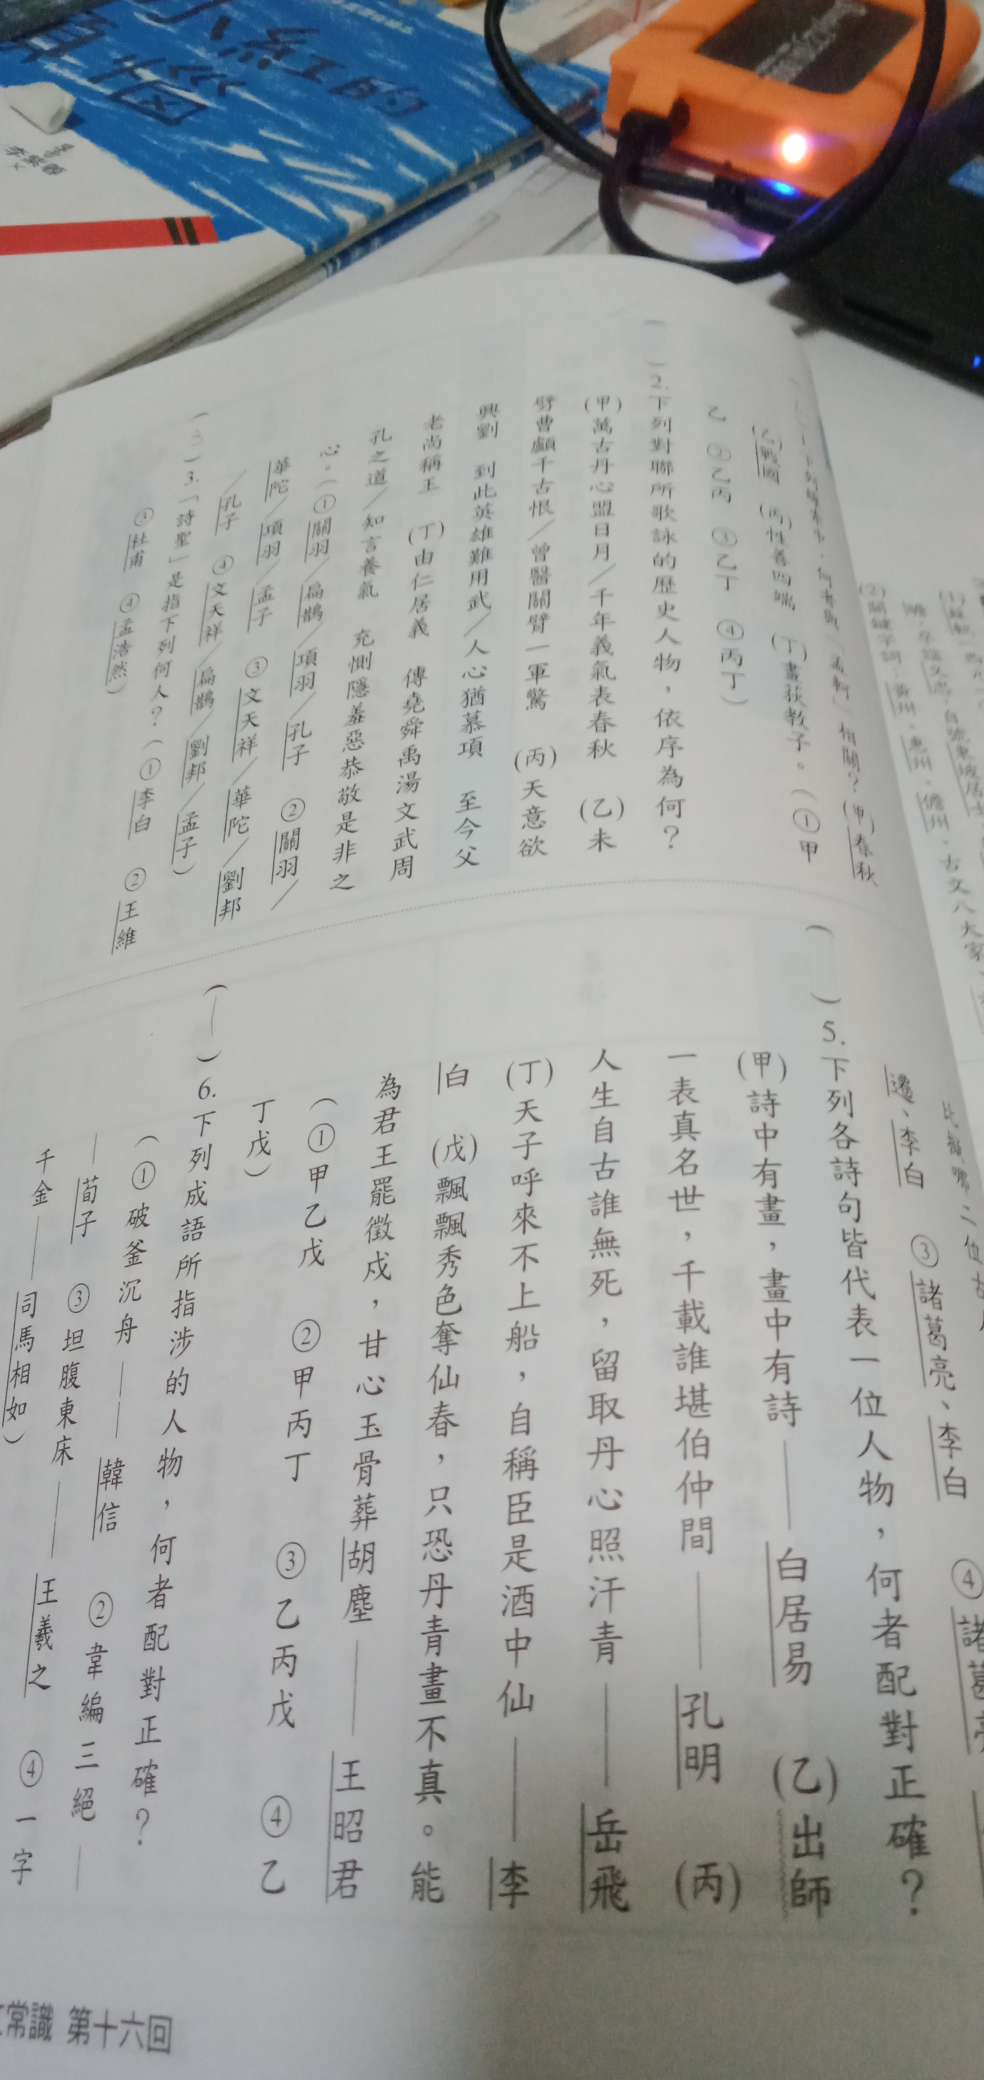 (2)
關鍵字詞
古文八大家
何者與「孟軻」相關？(甲)春秋
(乙)戰國　(丙)性善四端　(丁)畫荻教子。（①甲
乙　②乙丙　③乙丁　④丙丁）
(　)2.下列對聯所歌詠的歷史人物，依序為何？
(甲)萬古丹心盟日月／千年義氣表春秋　(乙)未
劈曹顱千古恨／曾醫關臂一軍驚　(丙)天意欲
興劉　到此英雄難用武／人心猶慕項　至今父
老尚稱王　(丁)由仁居義　傳堯舜禹湯文武周
孔之道／知言養氣　充惻隱羞惡恭敬是非之
心。（①關羽／扁鵲／項羽／孔子　②關羽／
華陀／項羽／孟子　③文天祥／華陀／劉邦
／孔子　④文天祥／扁鵲／劉邦／孟子）
(3)3.「詩聖」是指下列何人？（①李白　②王維
③杜甫　④孟浩然）
比擬哪二位
遷、李白　③諸葛亮、李白　④
(　)5.下列各詩句皆代表一位人物，何者配對正確？
(甲)詩中有畫，畫中有詩——白居易　(乙)出師
一表真名世，千載誰堪伯仲間——孔明　(丙)
人生自古誰無死，留取丹心照汗青——岳飛
(丁)天子呼來不上船，自稱臣是酒中仙——李
白　(戊)飄飄秀色奪仙春，只恐丹青畫不真。能
為君王罷徵戍，甘心玉骨葬胡塵——王昭君
（①甲乙戊　②甲丙丁　③乙丙戊　④乙
丁戊）
(一)6.下列成語所指涉的人物，何者配對正確？
（①破釜沉舟——韓信　②韋編三絕—
—荀子　③坦腹東床——王羲之　④一字
千金——司馬相如）
常識 第十六回